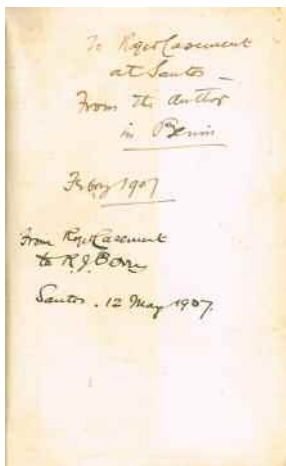 To Roger Casement
at Santos —
From the Author
in Benin
Feby 1907
From Roger Casement
to R. J.
Santos. 12 May 1907.